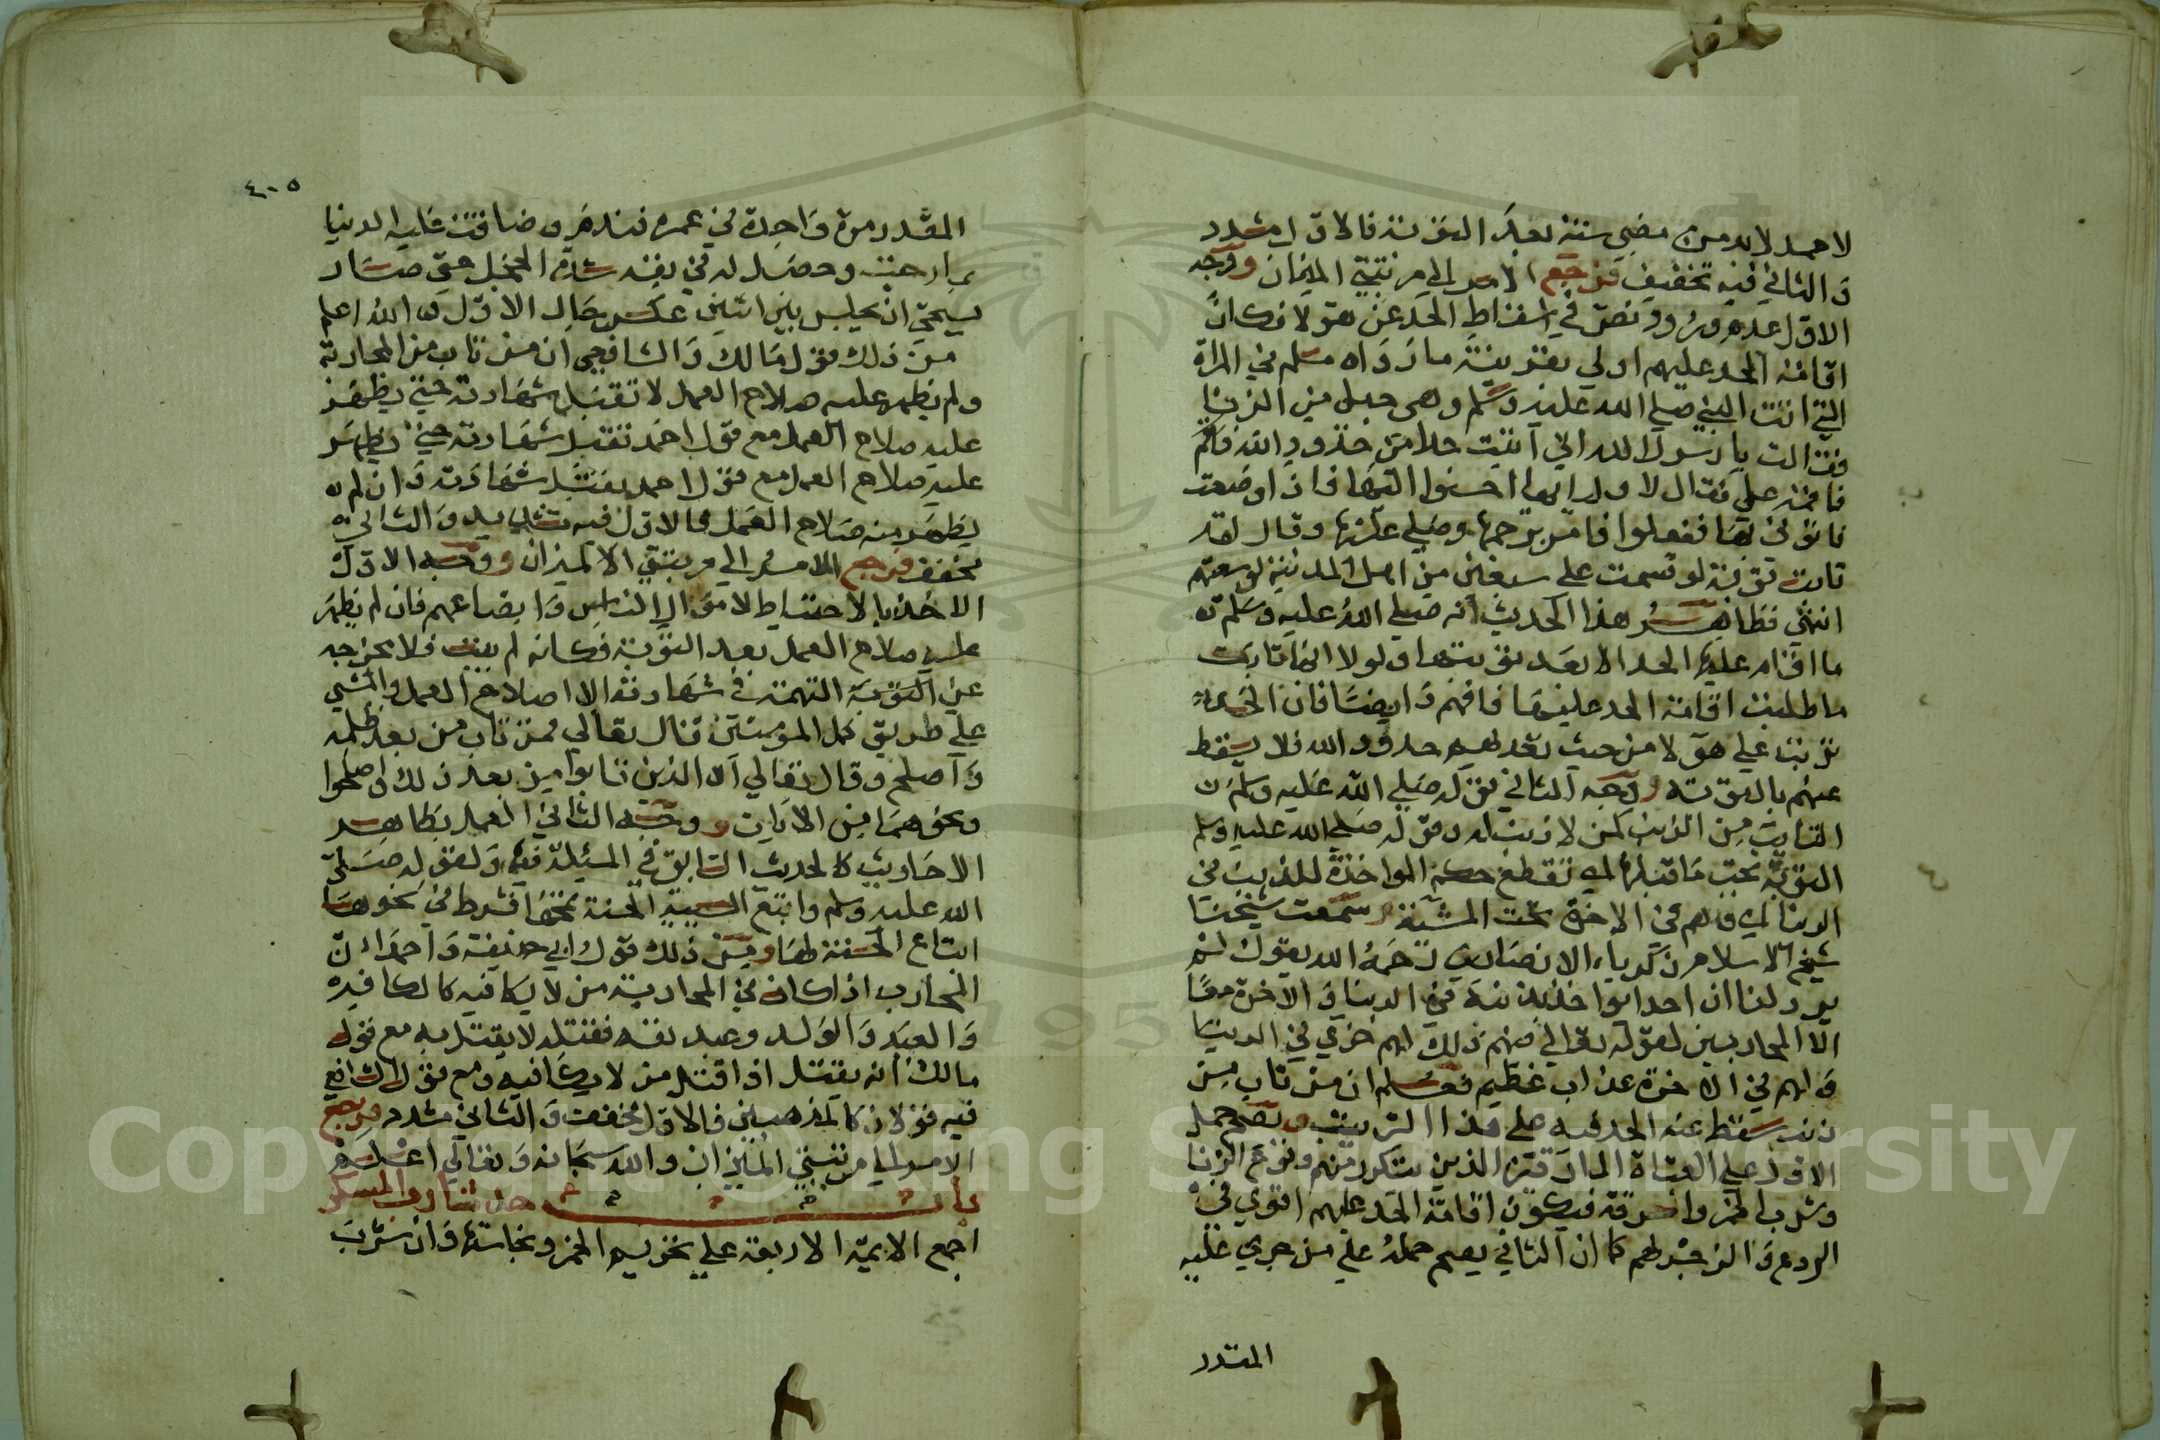 لاحمد لابد من مضي سنة بعد التوبة فالاول مشدد
والثاني فيه تخفيف فرجع الامر الى مرتبتي الميزان ووجه
الاول عدم ورود نص في اسقاط الحد عن هولا فكان
اقامة الحد عليهم اولى بقرينة ما رواه مسلم في المراة
التي اتت النبي صلي الله عليه وسلم وهي حبلى من الزنا
فقالت يا رسول الله اني اتيت حدا من حدود الله فاقم
فاقمه علي فقال لاوليائها احسنوا اليها فاذا وضعت
فاتوني بها ففعلوا فامر برجمها وصلي عليها وقال لقد
تابت توبة لو قسمت على سبعين من اهل المدينة لوسعتهم
انتهى فظاهر هذا الحديث انه صلي الله عليه وسلم
ما اقام عليها الحد الا بعد توبتها ولولا انها تابت
ما طلبت اقامة الحد عليها فافهم وايضا فان الحد
ترتب علي هولا من حيث تعديهم حدود الله فلا يسقط
عنهم بالتوبة ووجه الثاني قوله صلي الله عليه وسلم
التايب من الذنب كمن لا ذنب له وقوله صلي الله عليه وسلم
التوبة تجب ما قبلها اي تقطع حكم المواخذة للذنب في
الدنيا اي واما في الاخرة تحت المشية وسمعت شيخنا
شيخ الاسلام زكرياء الانصاري رحمه الله يقول لم
يرد لنا ان احدا يواخذ بذنبه في الدنيا والاخرة معا
الا المحاربين لقوله تعالي فيهم ذلك لهم خزي في الدنيا
ولهم في الاخرة عذاب عظيم فعلم ان من تاب من
ذنب سقط عنه الحد فيه على هذا الترتيب ويصح حمل
الاول علي العتاة المارقين الذين يتكرر منهم وقوع الزنا
وشرب الخمر والسرقة فيكون اقامة الحد عليهم اقوى في
الردع والزجر لهم كما ان الثاني يصح حمله علي من جري عليه
المقدر
٤٠٥
المقدر مرة واحدة في عمره فندم وضاقت عليه الدنيا
بما رحبت وحصل له في نفسه شدة الخجل حتي صار
يستحي ان يجلس بين اثنين عكس حال الاول والله اعلم
من ذلك قول مالك والشافعي ان من تاب من المحاربة
ولم يظهر عليه صلاح العمل لا تقبل شهادته حتي يظهر
عليه صلاح العمل مع قول احمد تقبل شهادته حتي يظهر
عليه صلاح العمل مع قول احمد بقبل شهادته وان لم
يظهر منه صلاح العمل فالاول فيه تشديد والثاني
مخفف فرجع الامر الي مرتبتي الميزان ووجه الاول
الاخذ بالاحتياط لاموال الناس وابضاعهم فان لم يظهر
عليه صلاح العمل بعد التوبة فكانه لم يتب فلا يخرجه
عن التوبة التهمة في شهادته الا اصلاح العمل والمشي
علي طريق كمل المؤمنين قال تعالى فمن تاب من بعد ظلمه
واصلح وقال تعالي الا الذين تابوا من بعد ذلك واصلحوا
ونحوهما من الايات ووجه الثاني العمل بظاهر
الاحاديث كالحديث السابق في المسئلة قبله ولقوله صلى
الله عليه وسلم واتبع السيئة الحسنة تمحها فشرط في محوها
اتباع الحسنة لها ومن ذلك قول ابي حنيفة واحمد ان
المحارب اذا كان في المحاربة من لا يكافيه كالكافر
والعبد والولد وعبد نفسه فقتله لا يقتل به مع قول
مالك انه يقتل اذا قتل من لا يكافيه ومع قول الشافعي
فيه قولان كالمذهبين فالاول مخفف والثاني مشدد فرجع
الامر الي مرتبتي الميزان والله سبحانه وتعالي اعلم
باب حد شارب المسكر
اجمع الايمة الاربعة علي تحريم الخمر ونجاستها وان شرب
Copyright © King Saud University
1957